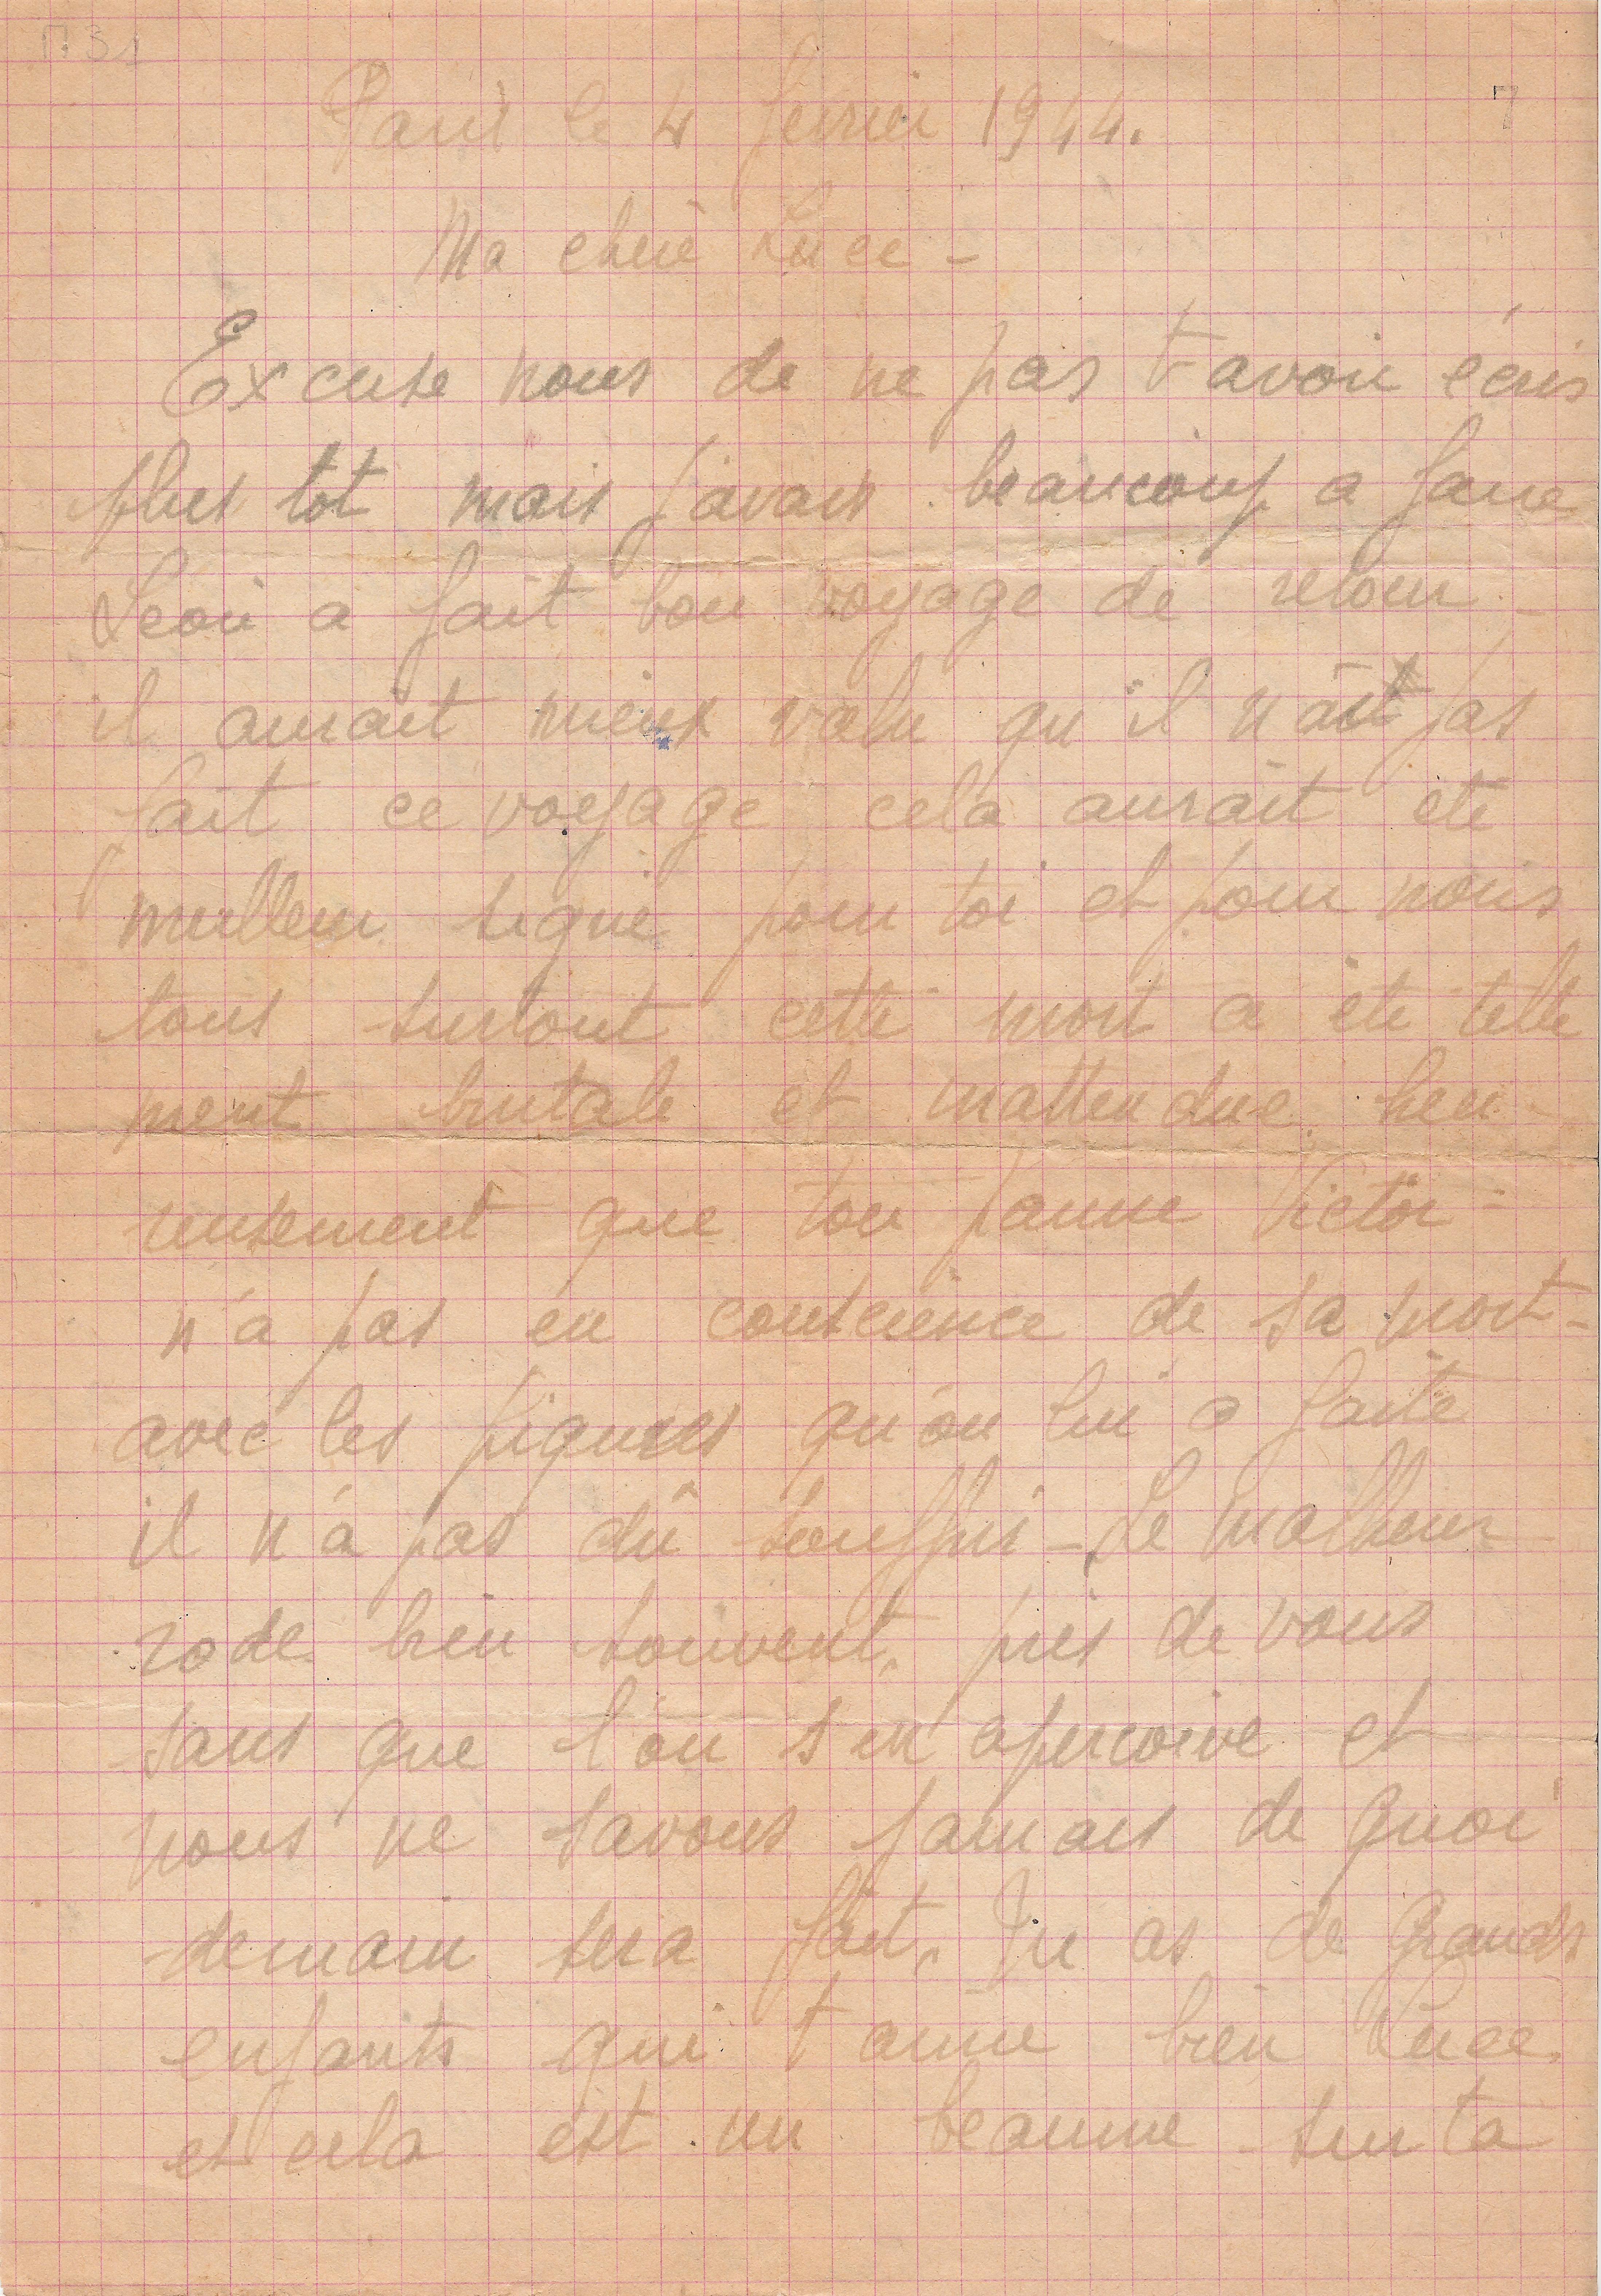 Paris le 4 février 1944.
Ma chère Luce -
Excuse nous de ne pas t'avoir écris
plus tot mais j'avais beaucoup a faire
Léon a fait bon voyage de retour -
il aurait mieux valu qu'il n'ait pas
fait ce voyage cela aurait été
meilleur signe pour toi et pour nous
tous surtout cette mort a été telle
ment brutale et inattendue. heu-
reusement que ton pauvre Victor -
n'a pas eu conscience de sa mort -
avec les piqures qu'on lui a faite
il n'a pas dû souffrir - Le malheur
rode bien souvent, près de vous
sans que l'on s'en apercoive et
nous ne savons jamais de quoi
demain sera fait, Tu as de Grands
enfants qui t'aime bien Luce,
et cela est un beaume sur ta